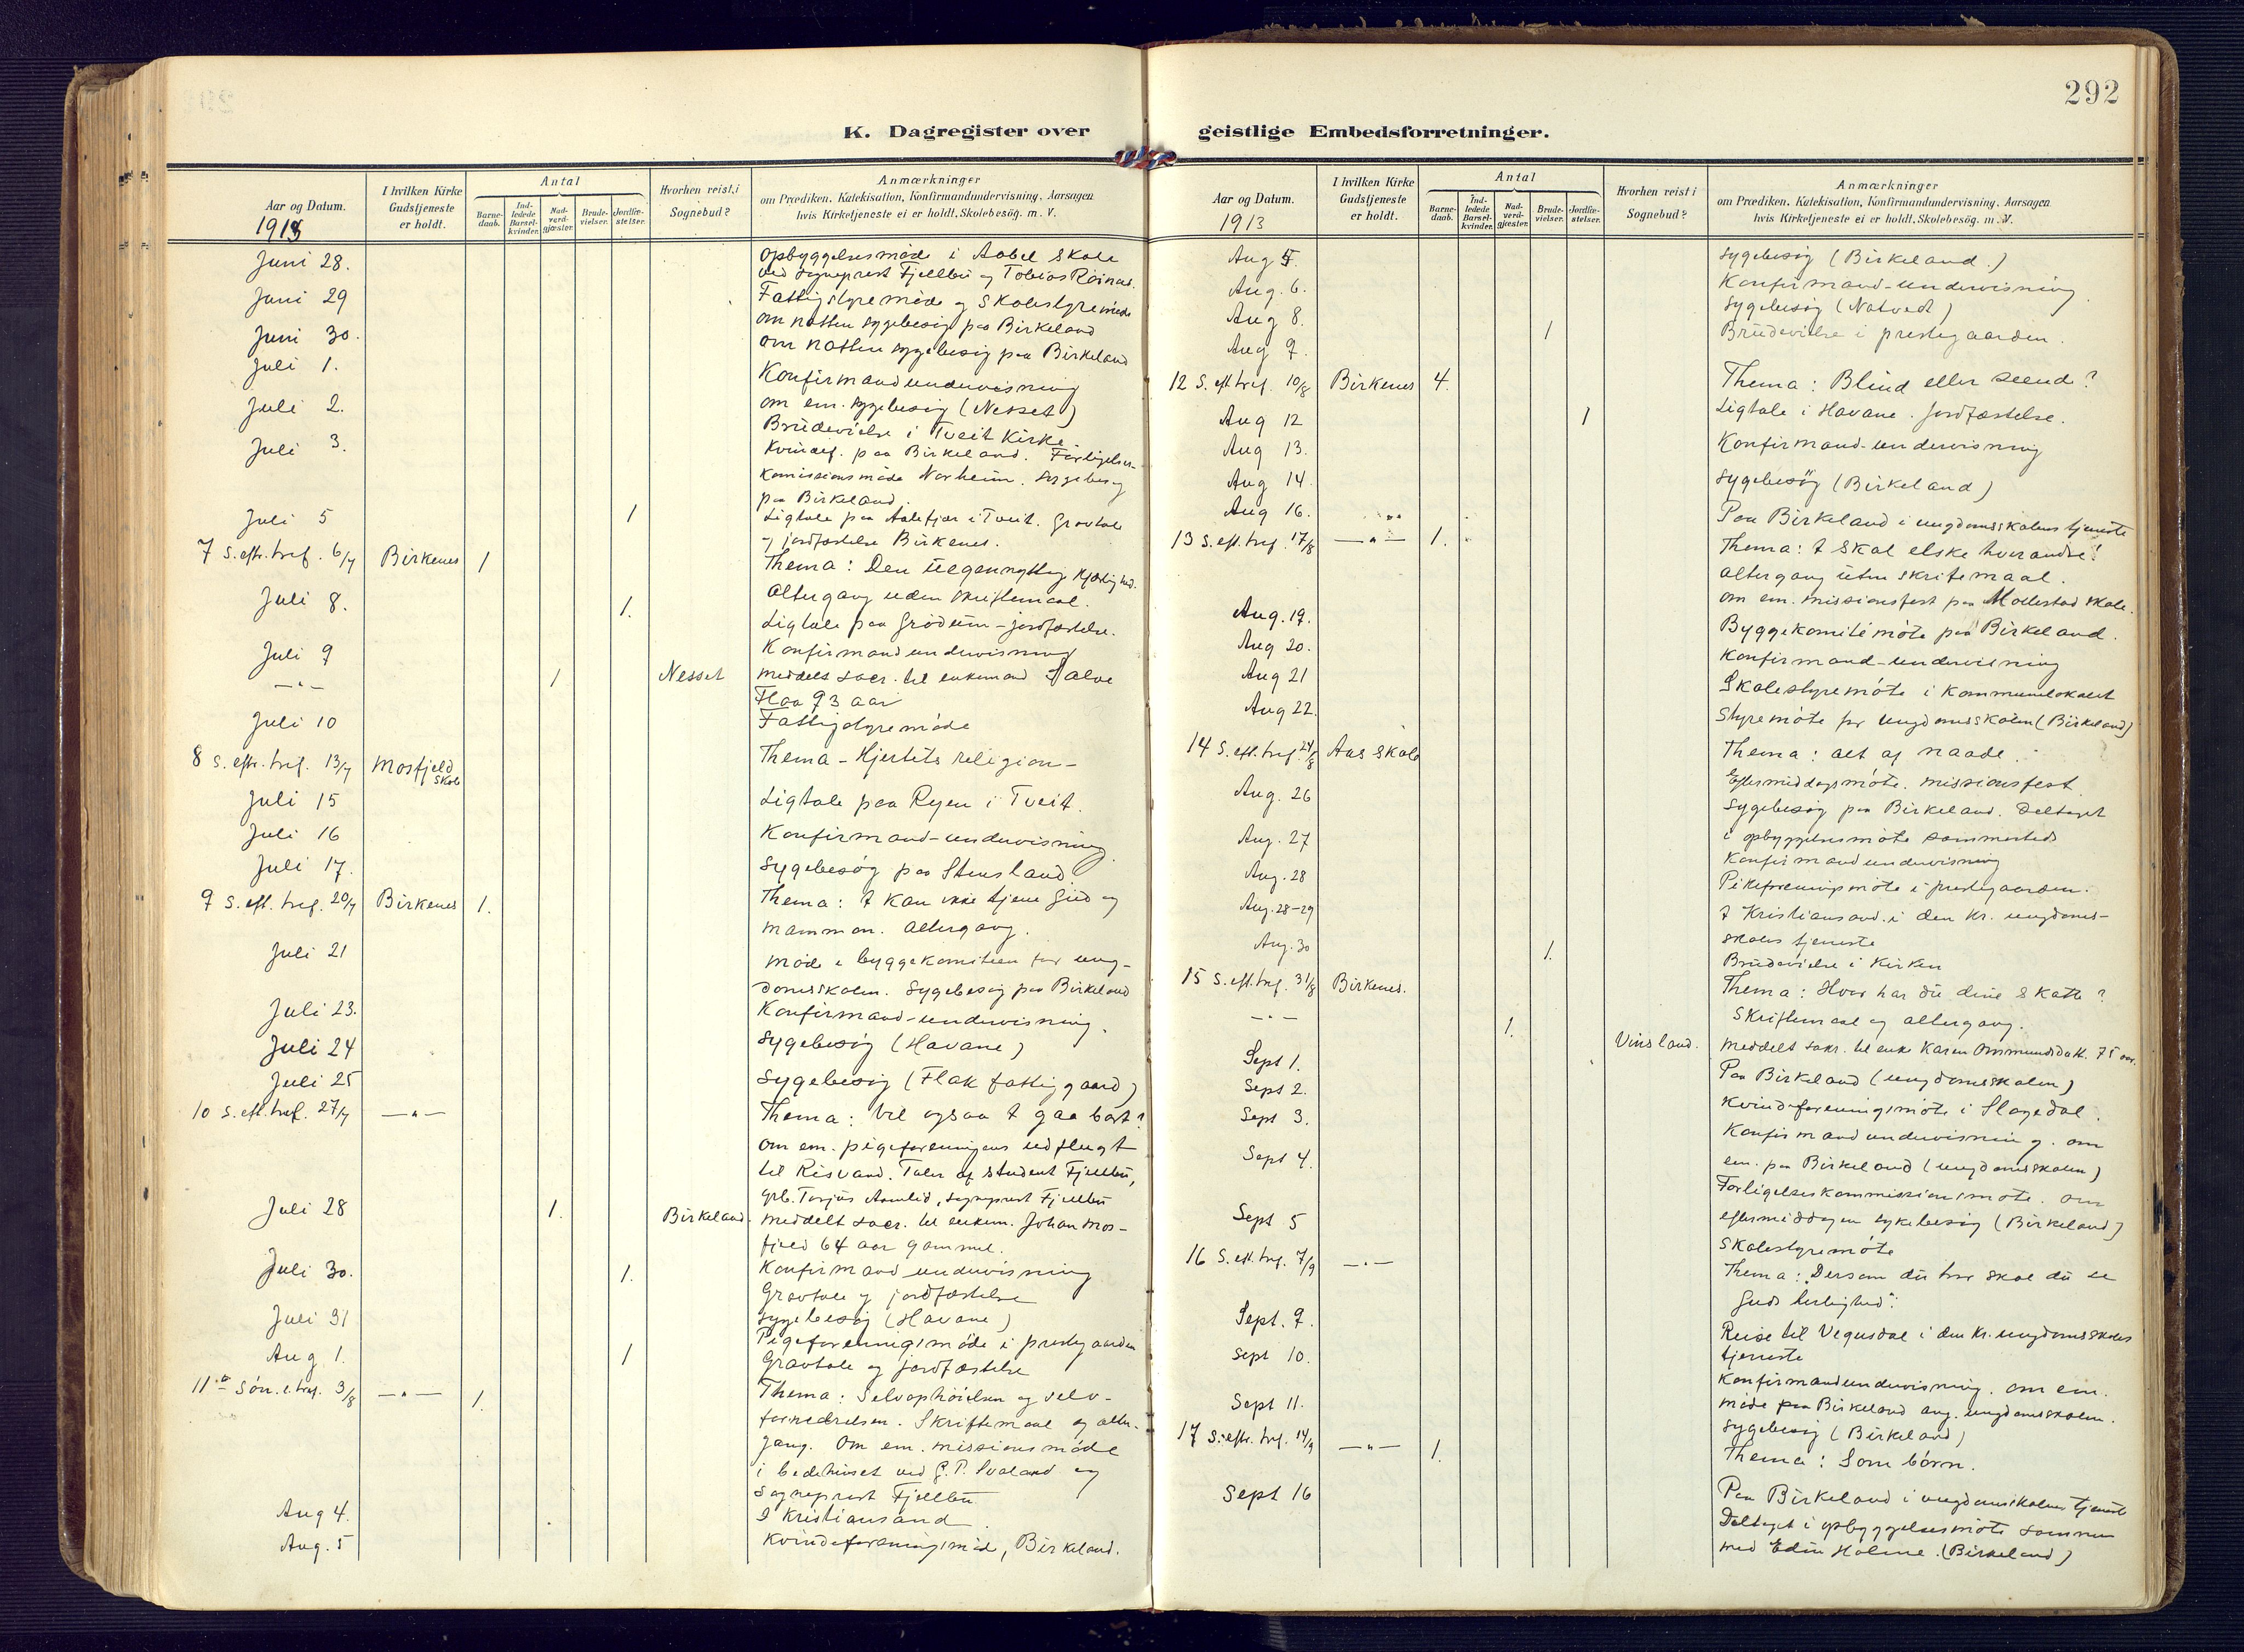 292
K. Dagregister over
Aar og Datum.
1913
I hvilken Kirke
Gudstjeneste
er holdt.
Antal
Barne-
daab.
Ind-
ledede
Barsel-
kvinder.
Nad-
verd-
gjæster.
Brude-
vielser.
Jordfæ-
stelser.
Hvorhen reist i
Sognebud?
Anmærkninger
om Prædiken, Katekisation, Konfirmandundervisning, Aarsagen
hvis Kirketjeneste ei er holdt, Skolebesög. m. V.
Juni 28. opbyggelsesmøde i Aabel skole
ved sogneprest Fjellbu og Tobias Rainas.
Juni 29 Fattigstyremøde og Skolestyremøde
Juni 30. om natten sygebesøg paa Birkeland
Juli 1. om natten sygebesøg paa Birkeland
Juli 2. Konfirmandundervisning
om em. sygebesøg (Nesset)
Juli 3. Brudevielse i Tveit Kirke.
Kvindef. paa Birkeland. Forligelses-
komissionsmøde Norheim. sygebesøg
paa Birkeland.
Juli 5 1 Ligtale paa Aalefjær i Tveit. Gravtale
og jordfæstelse Birkenes.
7 S. eft. tref. 6/7 Birkenes 1 Thema: Den uegennyttige kjærlighed.
altergang uden skriftemaal.
Juli 8. 1. Ligtale paa Grödum - jordfæstelse.
Juli 9 Konfirmandundervisning
— " — 1 Nesset meddelt sacr. til enkemand Salve
Flaa 93 aar
Juli 10 Fattigstyremøde
8 S. eftr. tref. 13/7 Mosfjeld Skole Thema - Hjertets religion -
Juli 15 Ligtale paa Ryen i Tveit.
Juli 16 Konfirmand-undervisning.
Juli 17. Sygebesøg paa Stensland
9 S. eft. tref. 20/7 Birkenes 1. Thema: I kan ikke tjene Gud og
mammon. Altergang.
Juli 21 møde i byggekomiteen for ung-
domsskolen. Sygebesøg paa Birkeland
Juli 23. Konfirmand-undervisning.
Juli 24 Sygebesøg (Havane)
Juli 25 Sygebesøg (Flak fattiggaard)
10 S. eft. tref. 27/7 — " — Thema: Vil ogsaa I gaa bort?
om em. pigeforeningens udflugt
til Risvand. Taler af student Fjellbu,
Grb. Torjus Aamlid, sogneprest Fjellbu
Juli 28 1. Birkeland. meddelt sacr. til enkem. Johan Mos-
fjeld 64 aar gammel.
Juli 30. 1. Konfirmandundervisning
Gravtale og jordfæstelse
Juli 31 Sygebesøg (Havane)
Pigeforeningsmøde i prestegaarden
Aug 1. 1 Gravtale og jordfæstelse
11te Søn. e. tref. 3/8 — " — 1. Thema: Selvophöielsen og selv-
fornedrelsen. Skriftemaal og alter-
gang. Om em. missionsmøde
i bedehuset ved G. P. Svaland og
sogneprest Fjellbu
Aug 4. I Kristiansand
Aug. 5 Kvindeforeningsmøde, Birkeland.
geistlige Embedsforretninger.
Aar og Datum.
1913
I hvilken Kirke
Gudstjeneste
er holdt.
Antal
Barne-
daab.
Ind-
ledede
Barsel-
kvinder.
Nad-
verd-
gjæster.
Brude-
vielser.
Jordfæ-
stelser.
Hvorhen reist i
Sognebud?
Anmærkninger
om Prædiken, Katekisation, Konfirmandundervisning, Aarsagen
hvis Kirketjeneste ei er holdt, Skolebesög. m. V.
Aug 5. Sygebesøg (Birkeland.)
Aug. 6. Konfirmand-undervisning.
Aug 8. Sygebesøg (Natvedt)
Aug 9. 1 Brudevielse i prestegaarden.
12 S. eft. tref. 10/8 Birkenes 4. Thema: Blind eller seende?
Aug 12 1 Ligtale i Havane. Jordfæstelse.
Aug 13. Konfirmand-undervisning
Aug 14. Sygebesøg (Birkeland)
Aug 16. Paa Birkeland i ungdomsskolens tjeneste
13 S. eft. tref. 17/8 — " — 1. Thema: I skal elske hverandre!
altergang uten skriftemaal.
om em. missionsfest paa Mollestad skole.
Aug. 19. Byggekomitémöte paa Birkeland.
Aug 20. Konfirmand-undervisning
Aug 21 Skolestyremöte i kommunelokalet
Aug 22. Styremöte for ungdomsskolen (Birkeland)
14 S. eft. tref. 24/8 Aas skole Thema: alt af naade.
Eftermiddagsmöte. missionsfest.
Aug. 26 Sygebesøg paa Birkeland. Deltaget
i opbyggelsesmöte sammesteds
Aug. 27 Konfirmandundervisning
Aug. 28 Pikeforeningsmöte i prestegaarden.
Aug. 28-29 I Kristiansand i den kr. ungdoms-
skoles tjeneste
Aug. 30 1. Brudevielse i kirken
15 S. eft. tref. 31/8 Birkenes. Thema: Hvor har du dine skatte?
Skriftemaal og altergang.
— " — 1. Vinsland. meddelt sakr. til enke Karen Ommundsdatt. 75 aar.
Sept 1. Paa Birkeland (ungdomsskolen)
Sept 2. Kvindeforeningsmöte i Flagedal.
Sept 3. Konfirmandundervisning. om
em. paa Birkeland (ungdomsskolen)
Sept 4. Forligelseskommissionsmöte. om
eftermiddagen sykebesøg (Birkeland)
Sept 5 Skolestyremöte
16 S. eft. tref. 7/9 — " — Thema: "Dersom du tror skal du se
Guds herlighed".
Sept. 9. Reise til Vegusdal i den kr. ungdomsskoles
tjeneste
Sept 10. Konfirmandundervisning. om em.
møde paa Birkeland ang. ungdomsskolen.
Sept 11. Sygebesøg (Birkeland)
17 S. eftr. tref. 14/9 — " — 1. Thema: Som börn.
Sept 16 Paa Birkeland i ungdomsskolens tjeneste
Deltaget i opbyggelsesmöte sammen
med Edin Holme. (Birkeland)